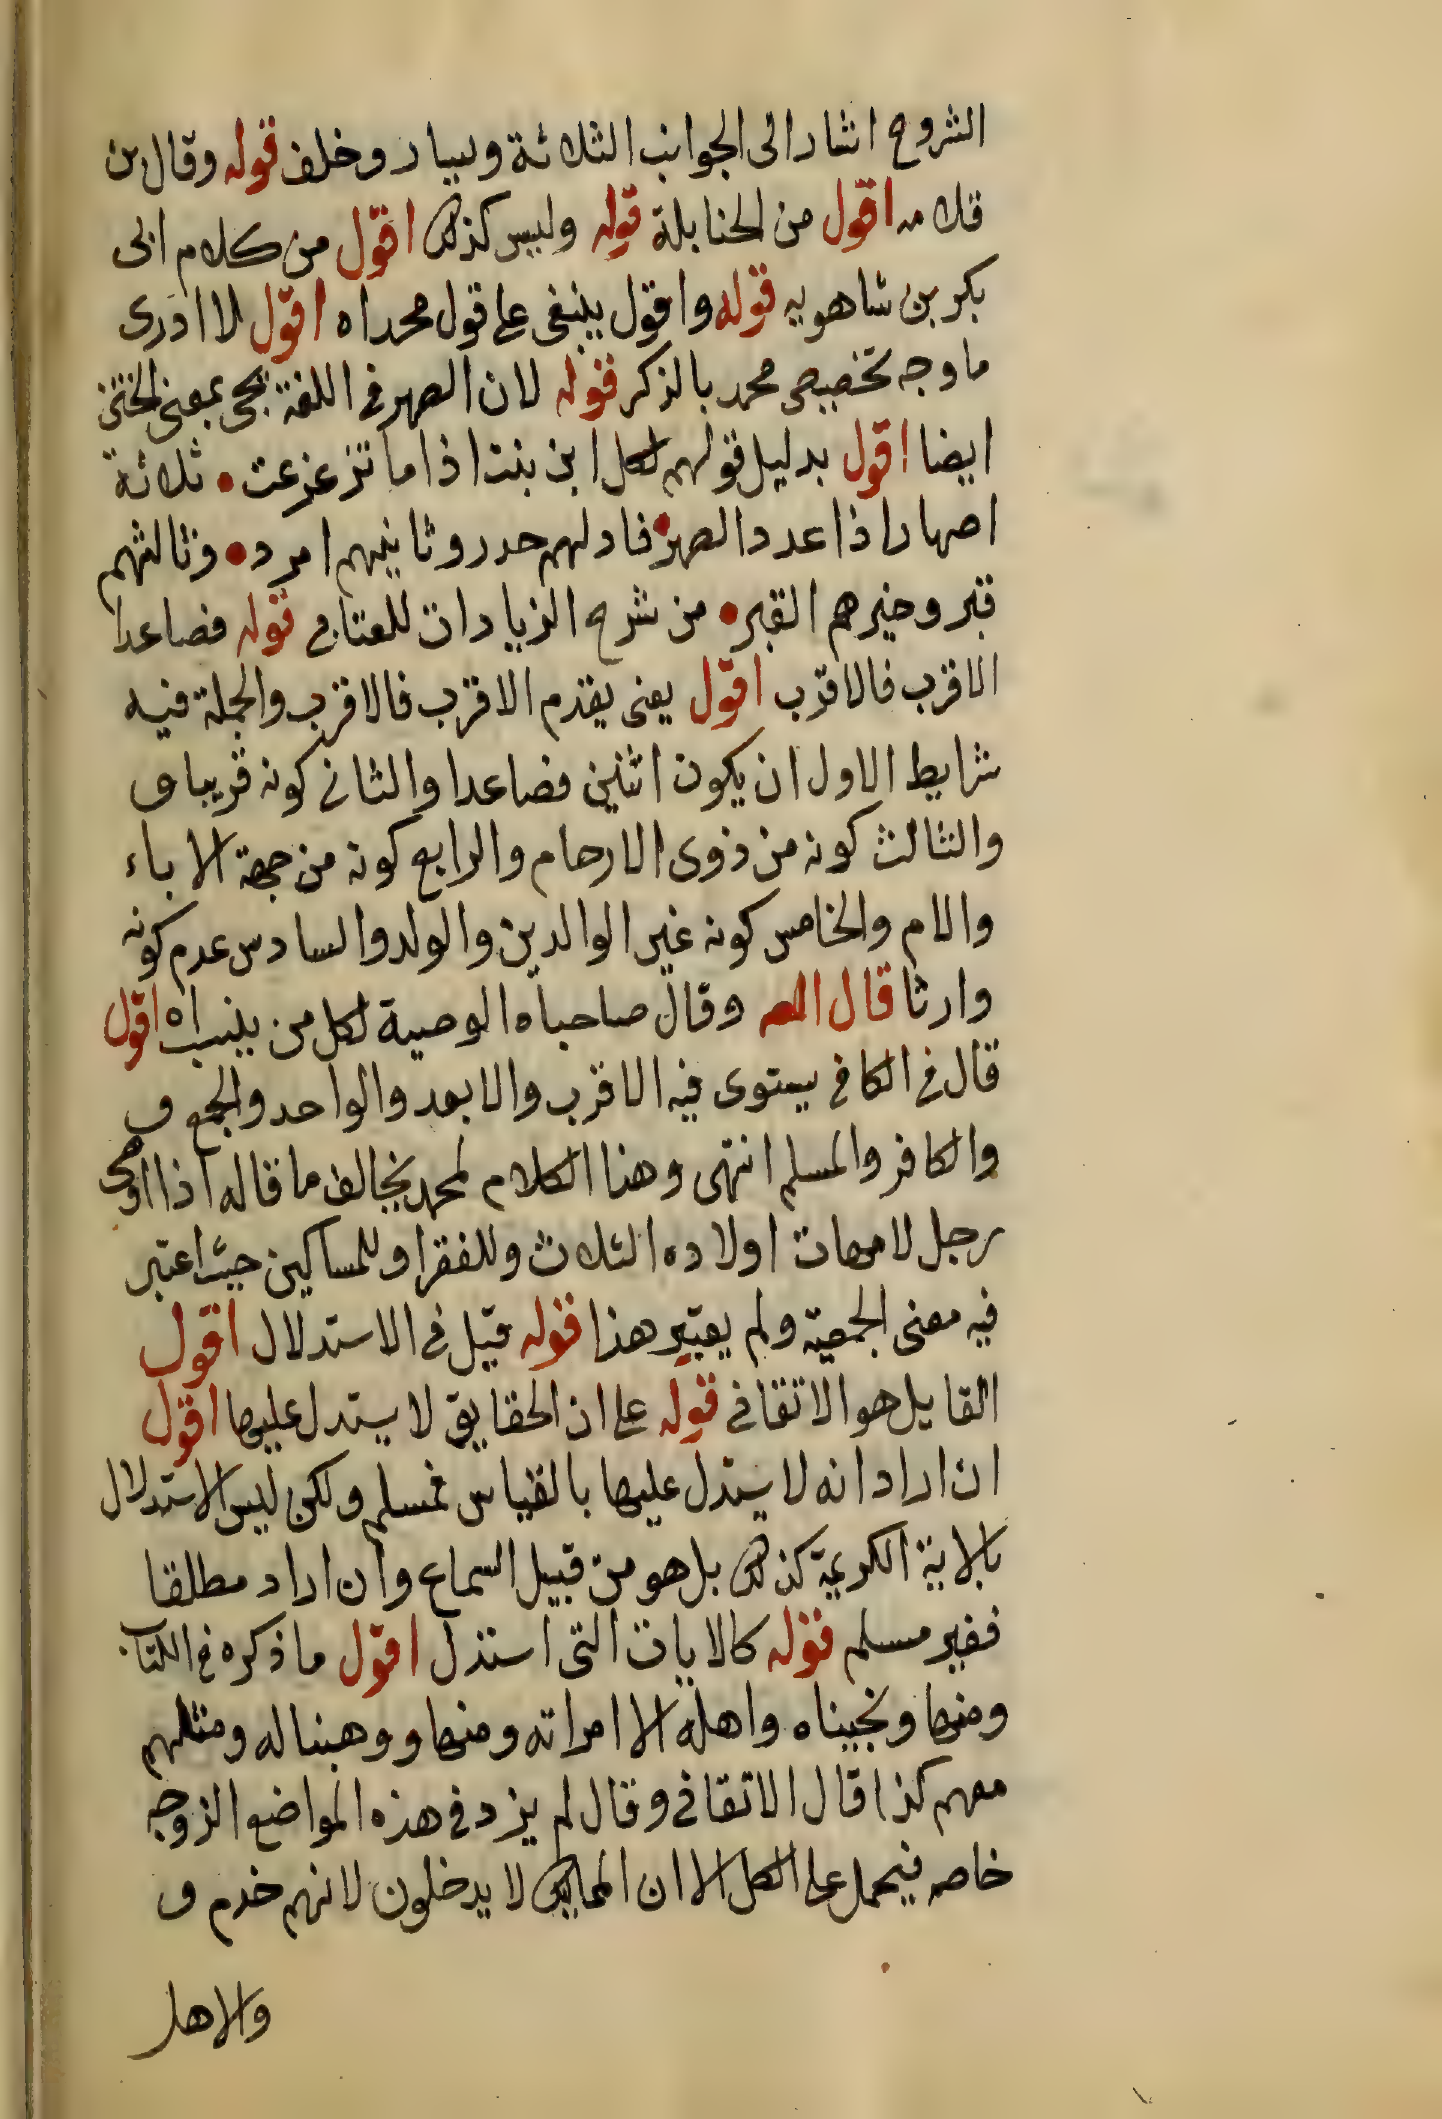 الشروح اشار الى الجوانب الثلاثة ويسار وخلف قوله وقال بن
قلامه اقول من الحنابلة قوله وليس كذلك اقول من كلام ابى
بكر بن شاهويه قوله واقول ينبغى على قول محمد اه اقول لا ادرى
ما وجه تخصيص محمد بالذكر قوله لان الصهر فى اللغة يجى بمعنى الختن
ايضا اقول بدليل قولهم لكل ابن بنت اذا ما تزعزعت • ثلاثة
اصهار اذا عدد الصهر • فاولهم حدر وثانيهم امرد • وثالثهم
قبر وخيرهم القبر • من شرح الزيادات للعتابى قوله فصاعدا
الاقرب فالاقرب اقول يعنى يقدم الاقرب فالاقرب والجملة فيه
شرايط الاول ان يكون اثنين فصاعدا والثانى كونه قريبا و
والثالث كونه من ذوى الارحام والرابع كونه من جهة الاباء
والام والخامس كونه غير الوالدين والولد والسادس عدم كونه
وارثا قال المص وقال صاحباه الوصية لكل من ينسب اه اقول
قال فى الكافى يستوى فيه الاقرب والابعد والواحد والجمع و
والكافر والمسلم انتهى وهنا الكلام لمحمد يخالف ما قاله اذا اوصى
رجل لامهات اولاده الثلاث وللفقرا وللمساكين حيث اعتبر
فيه معنى الجمعية ولم يعتبر هذا قوله قيل فى الاستدلال اقول
القايل هو الاتقانى قوله على ان الحقايق لا يستدل عليها اقول
ان اراد انه لا يستدل عليها بالقياس فمسلم ولكن ليس الاستدلال
بالاية الكريمة كذلك بل هو من قبيل السماع وان اراد مطلقا
فغير مسلم قوله كالايات التى استدل اقول ما ذكره فى الكتاب
ومنها ونجيناه واهله الا امراته ومنها ووهبنا له ومثلهم
معهم كذا قال الاتقانى وقال لم يزد فى هذه المواضع الزوجه
خاصه فيحمل على الكل الا ان المماليك لا يدخلون لانهم خدم و
والاهل